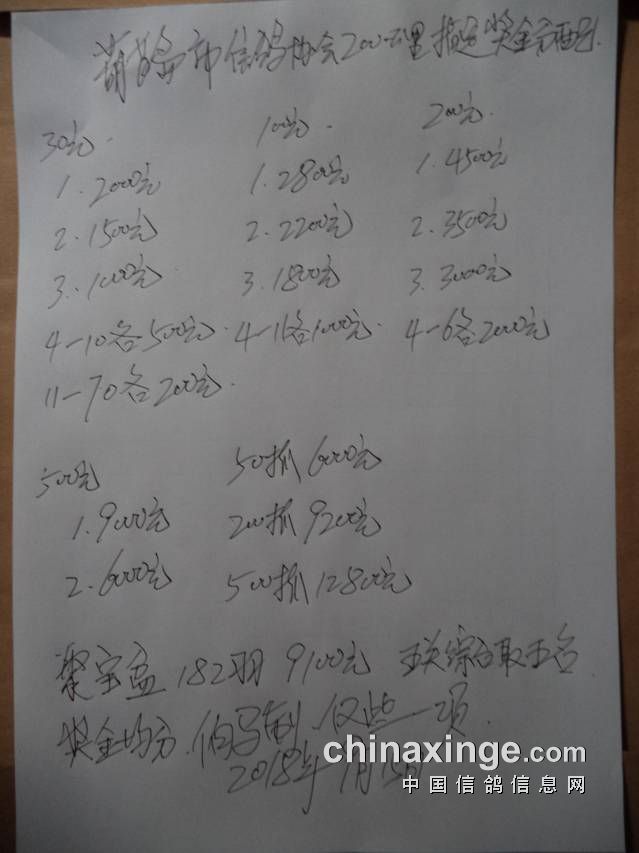 葫芦岛市信鸽协会200公里指定奖金分配
30元. 100元. 200元.
1.2000元 1.2800元 1.4500元
2.1500元 2.2200元 2.3500元
3.1000元 3.1800元 3.3000元
4-10各500元. 4-11各1000元. 4-6各2000元
11-70各200元.
500元 50抓600元
1.9000元 200抓9200元
2.6000元 500抓12800元
聚宝盆182羽9100元 关综合取五名
奖金均分.伯马制.仅此一项.
2018年 月15日
chinaxinge.com
中国信鸽信息网